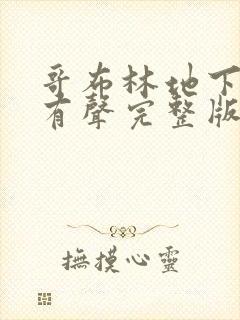 哥布林地下
有聲完整版
撫摸心靈